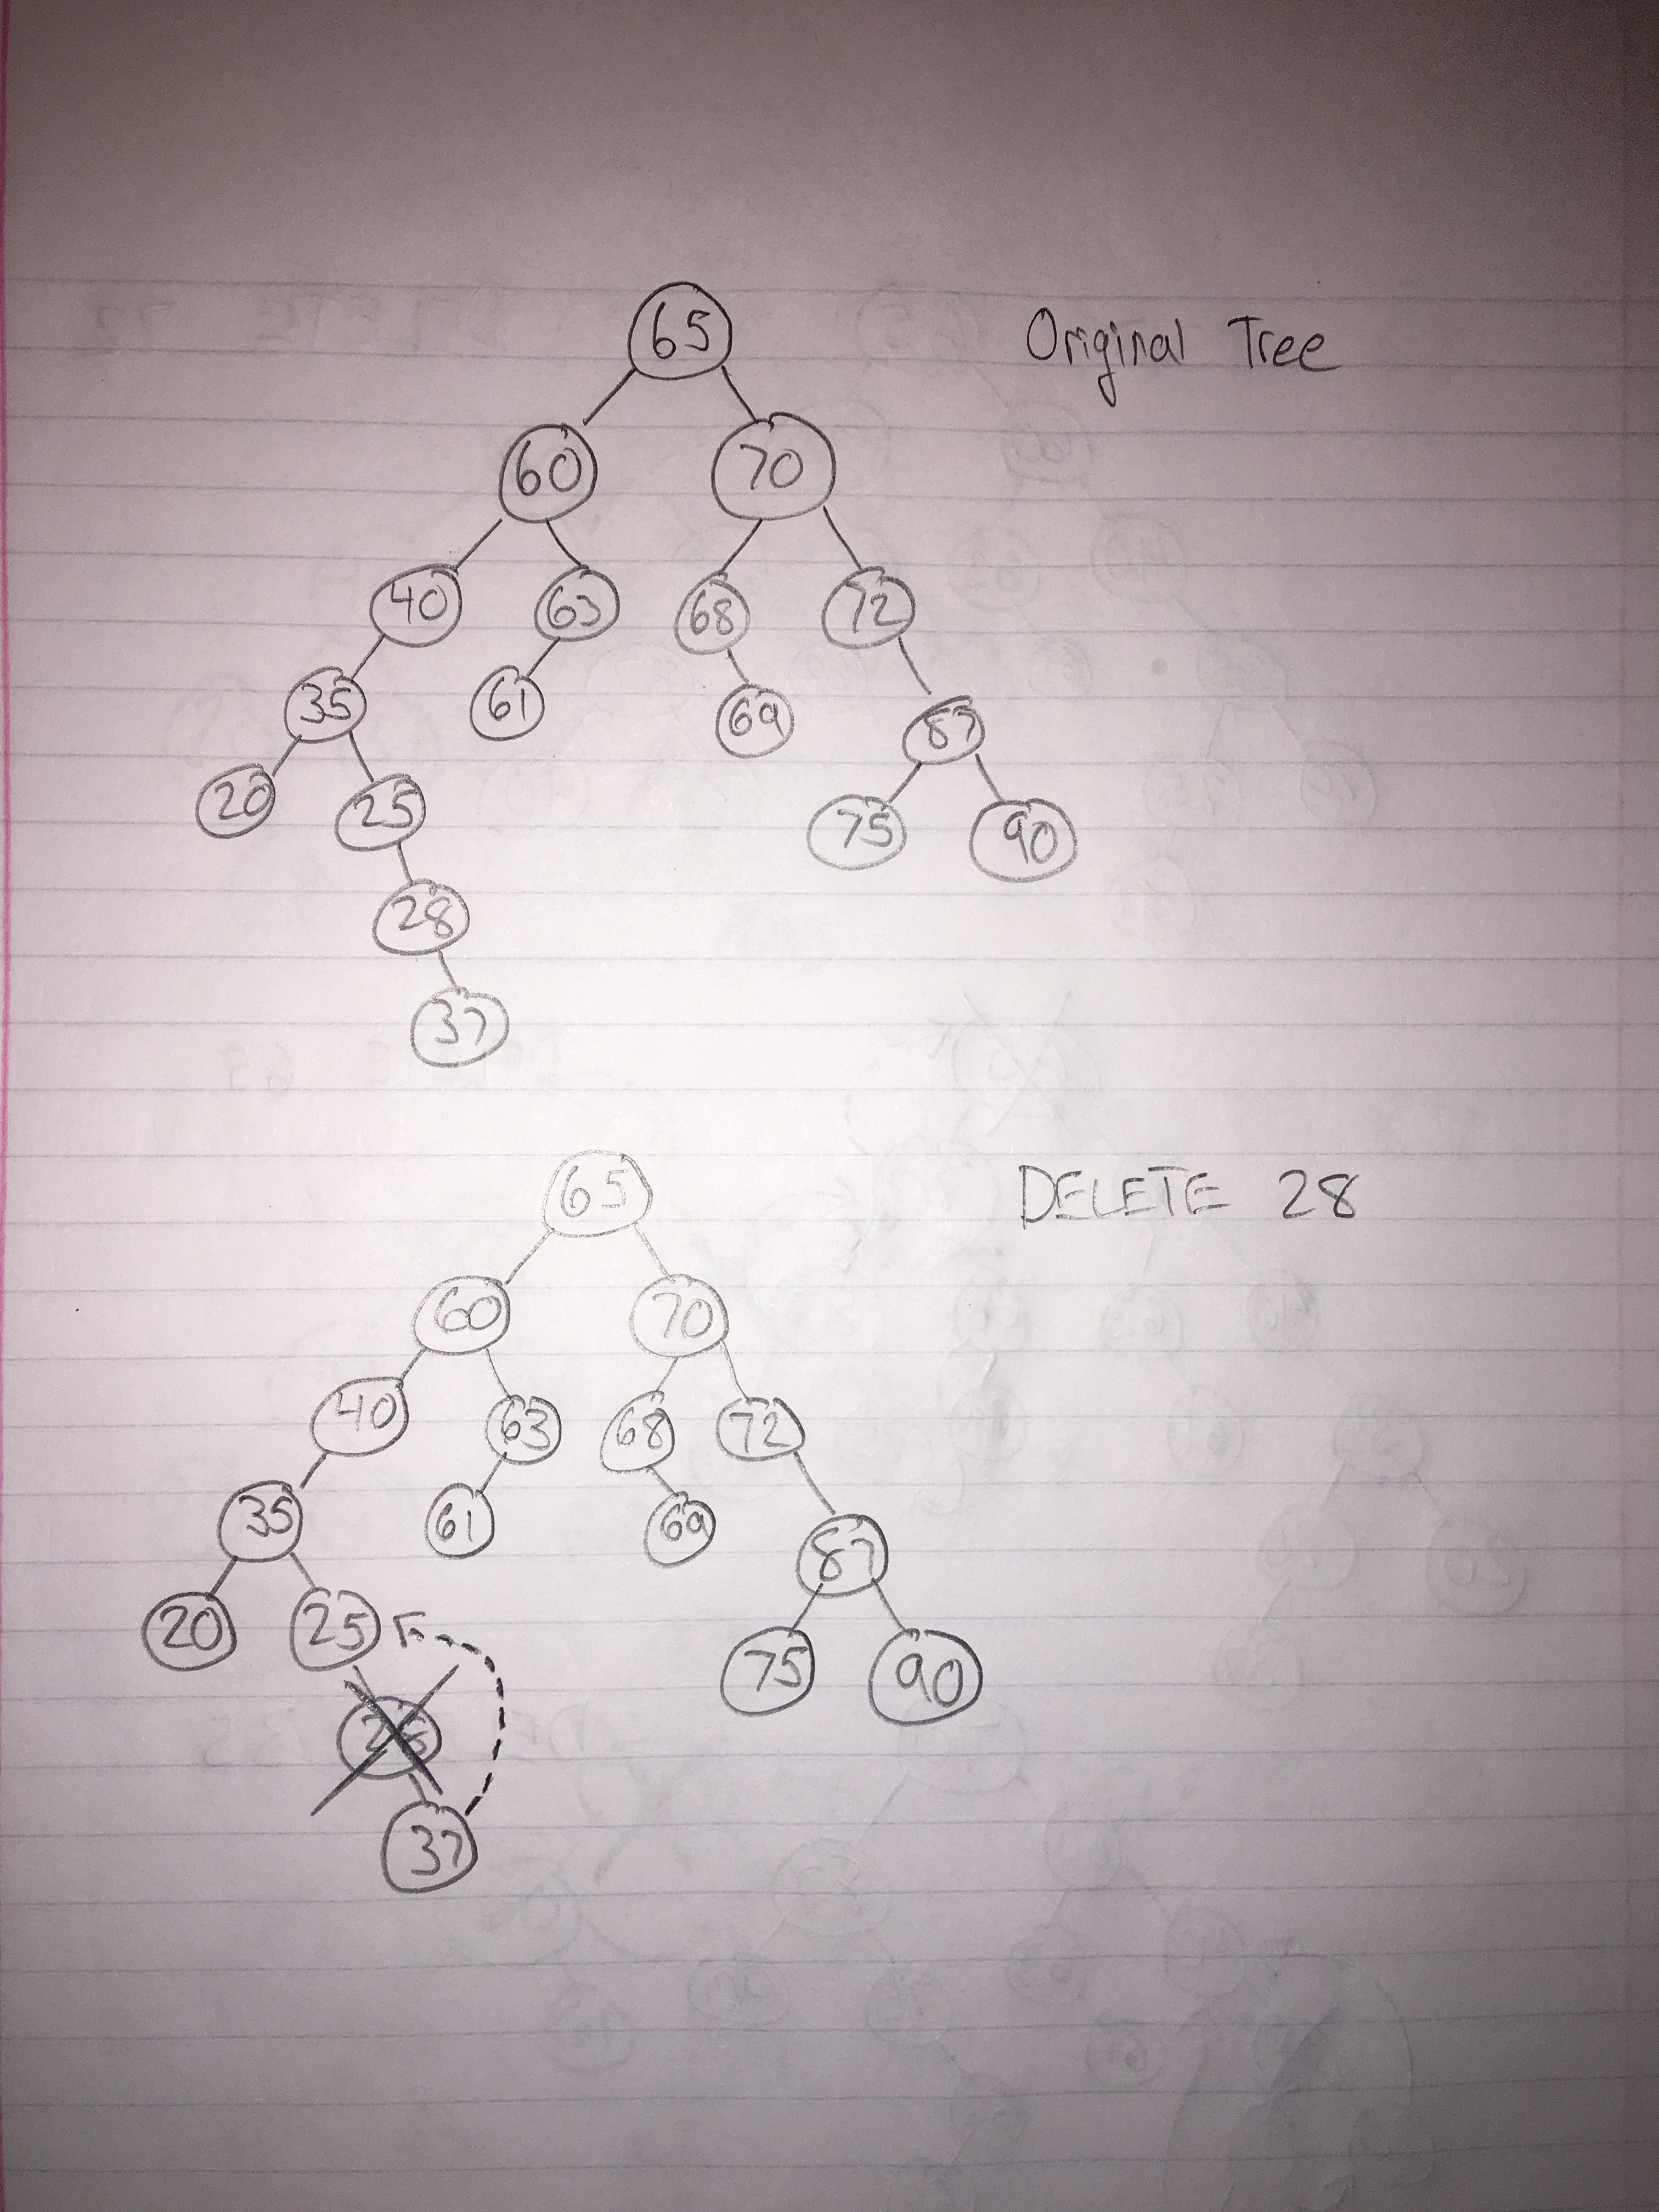 65 Original Tree
60 70
40 63 68 72
35 61 69 87
20 25 75 90
28
37
65 DELETE 28
60 70
40 63 68 72
35 61 69 87
20 25 75 90
28
37